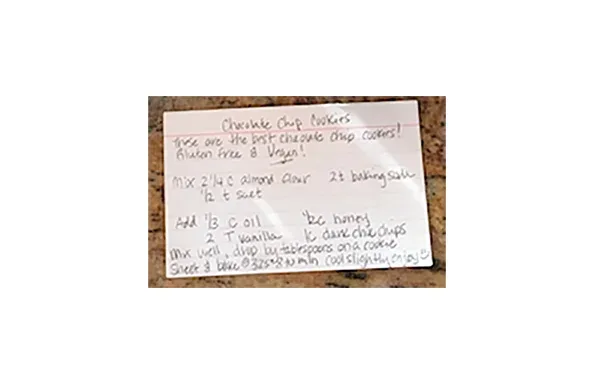 Chocolate Chip Cookies
These are the best chocolate chip cookies!
Gluten free & Vegan!
Mix 2 1/4 C almond flour 2 t baking soda
1/2 t salt
Add 1/3 C oil 1/2 C honey
2 T vanilla 1 C dark choc chips
Mix well, drop by tablespoons on a cookie
Sheet & bake @ 325° 8-10 min Cool slightly enjoy